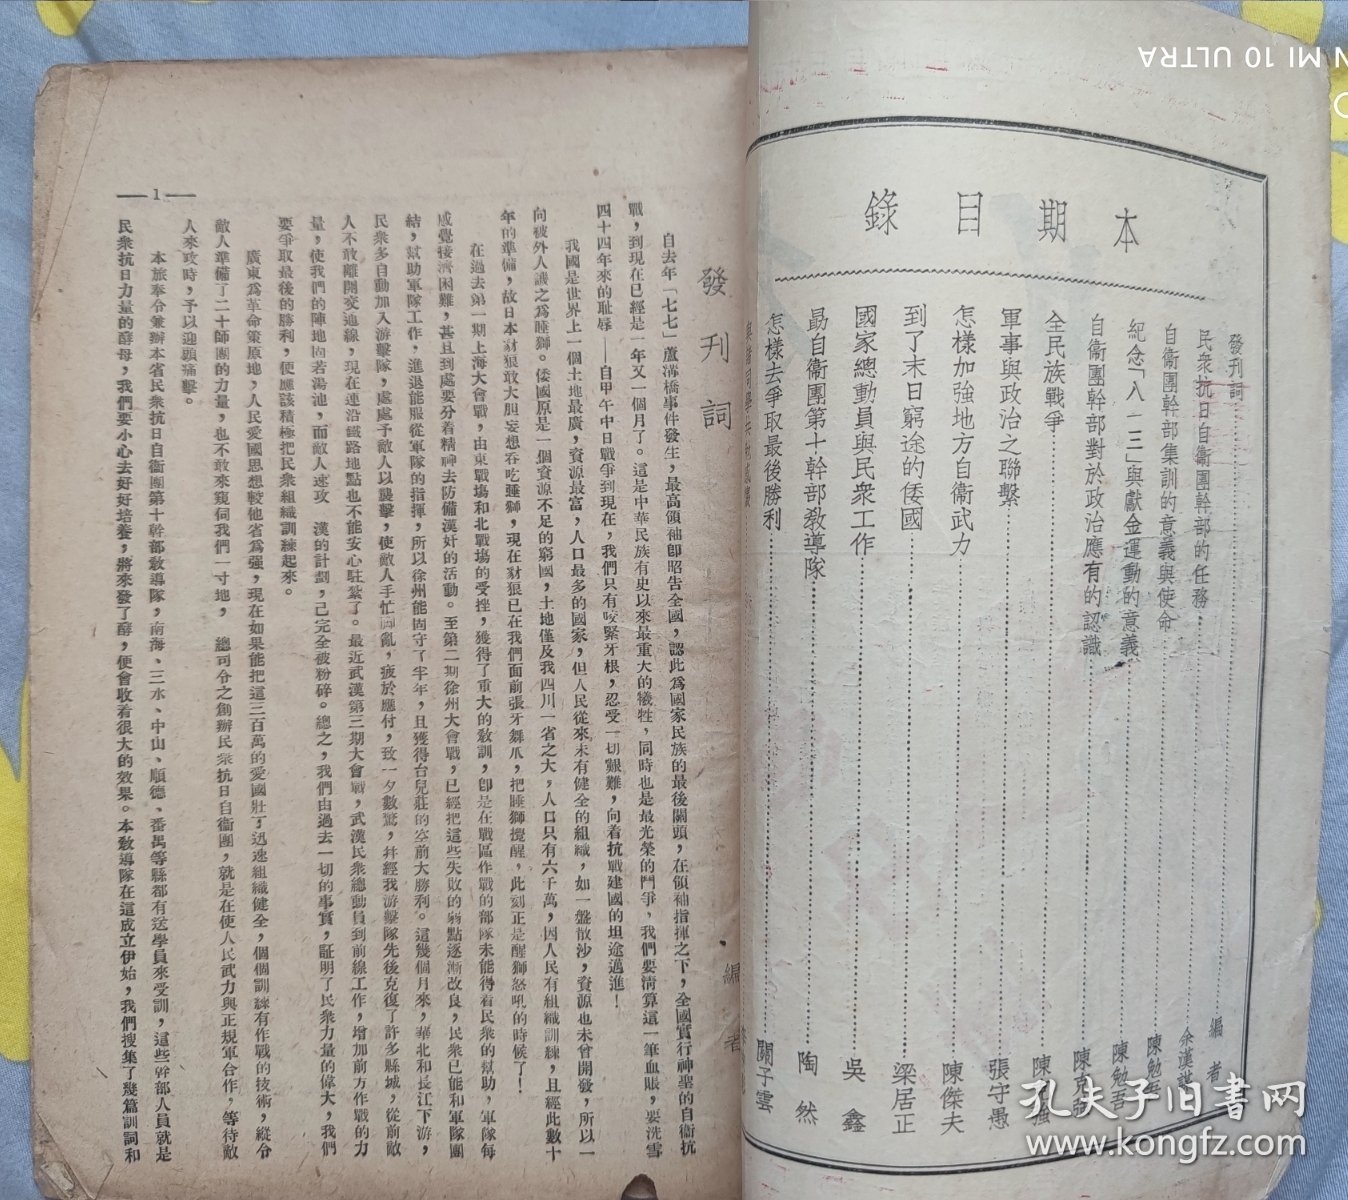 本期目錄
發刊詞 編者
民衆抗日自衞團幹部的任務 余漢謀
自衞團幹部集訓的意義與使命 陳勉吾
紀念「八一三」與獻金運動的意義 陳勉吾
自衞團幹部對於政治應有的認識 陳克强
全民族戰爭 陳 强
軍事與政治之聯繫 張守愚
怎樣加強地方自衞武力 陳傑夫
到了末日窮途的倭國 梁居正
國家總動員與民衆工作 吳鑫
勗自衞團第十幹部敎導隊 陶然
怎樣去爭取最後勝利 關子雲
發刊詞 編者
自去年「七七」蘆溝橋事件發生，最高領袖卽昭告全國，認此爲國家民族的最後關頭，在領袖指揮之下，全國實行神聖的自衞抗
戰，到現在已經是一年又一個月了。這是中華民族有史以來最重大的犧牲，同時也是最光榮的鬥爭，我們要淸算這一筆血賬，要洗雪
四十四年來的耻辱——自甲午中日戰爭到現在，我們只有咬緊牙根，忍受一切艱難，向着抗戰建國的坦途邁進！
我國是世界上一個土地最廣，資源最富，人口最多的國家，但人民從來未有健全的組織，如一盤散沙，資源也未曾開發，所以一
向被外人譏之爲睡獅。倭國原是一個資源不足的窮國，土地僅及我四川一省之大，人口只有六千萬，因人民有組織訓練，且經此數十
年的準備，故日本豺狼敢大胆妄想吞吃睡獅，現在豺狼已在我們面前張牙舞爪，把睡獅攪醒，此刻正是醒獅怒吼的時候了！
在過去第一期上海大會戰，由東戰塲和北戰塲的受挫，獲得了重大的敎訓，卽是在戰區作戰的部隊未能得着民衆的幫助，軍隊每
感覺接濟困難，甚且到處要分着精神去防備漢奸的活動。至第二期徐州大會戰，已經把這些失敗的弱點逐漸改良，民衆已能和軍隊團
結，幫助軍隊工作，進退能服從軍隊的指揮，所以徐州能固守了半年，且獲得台兒莊的空前大勝利。這幾個月來，華北和長江下游，
民衆多自動加入游擊隊，處處予敵人以襲擊，使敵人手忙脚亂，疲於應付，致一夕數驚，幷經我游擊隊先後克復了許多縣城，從前敵
人不敢離開交通線，現在連沿鐵路地點也不能安心駐紮了。最近武漢第三期大會戰，武漢民衆總動員到前線工作，增加前方作戰的力
量，使我們的陣地固若湯池，而敵人速攻 漢的計劃，已完全被粉碎。總之，我們由過去一切的事實，証明了民衆力量的偉大，我們
要爭取最後的勝利，便應該積極把民衆組織訓練起來。
廣東爲革命策原地，人民愛國思想較他省爲强，現在如果能把這三百萬的愛國壯丁迅速組織健全，個個訓練有作戰的技術，縱令
敵人準備了二十師團的力量，也不敢來窺伺我們一寸地， 總司令之創辦民衆抗日自衞團，就是在使人民武力與正規軍合作，等待敵
人來攻時，予以迎頭痛擊。
本旅奉令兼辦本省民衆抗日自衞團第十幹部敎導隊，南海、三水、中山、順德、番禺等縣都有送學員來受訓，這些幹部人員就是
民衆抗日力量的酵母，我們要小心去好好培養，將來發了酵，便會收着很大的效果。本敎導隊在這成立伊始，我們搜集了幾篇訓詞和
1
MI 10 ULTRA
孔夫子旧书网
www.kongfz.com